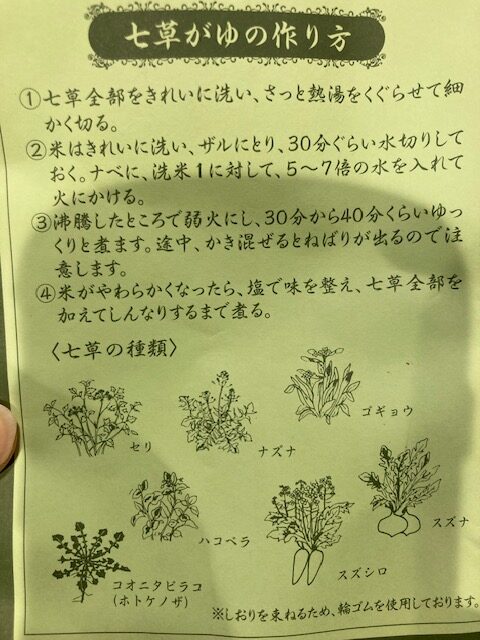 七草がゆの作り方
①七草全部をきれいに洗い、さっと熱湯をくぐらせて細
かく切る。
②米はきれいに洗い、ザルにとり、30分ぐらい水切りして
おく。ナベに、洗米1に対して、5〜7倍の水を入れて
火にかける。
③沸騰したところで弱火にし、30分から40分くらいゆっ
くりと煮ます。途中、かき混ぜるとねばりが出るので注
意します。
④米がやわらかくなったら、塩で味を整え、七草全部を
加えてしんなりするまで煮る。
〈七草の種類〉
セリ
ナズナ
ゴギョウ
ハコベラ
スズナ
コオニタビラコ
(ホトケノザ)
スズシロ
※しおりを束ねるため、輪ゴムを使用しております。